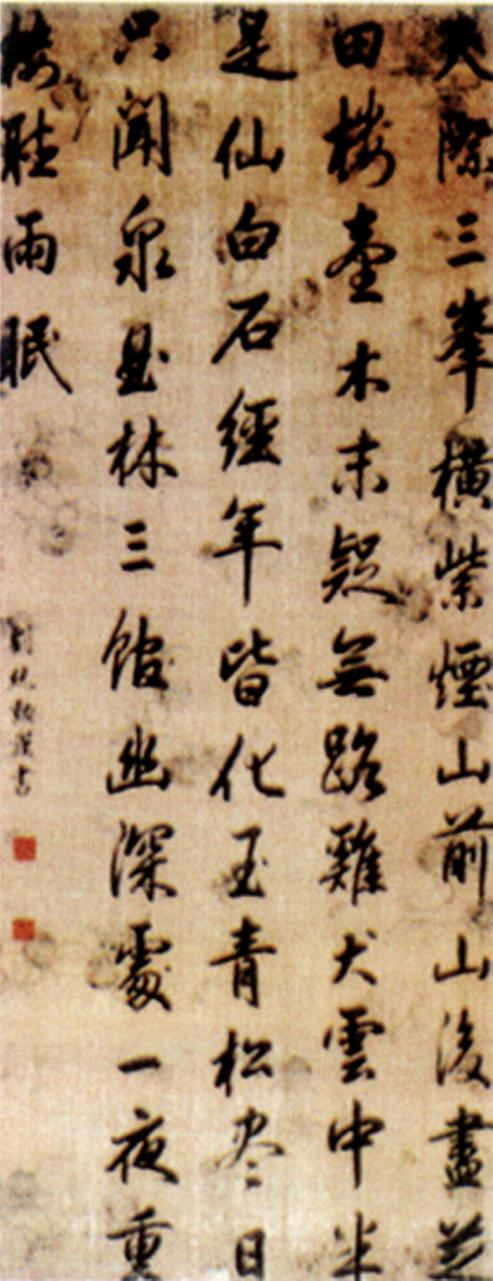 天際三峯橫紫煙山前山後盡芝
田樓臺木末疑無路雞犬雲中半
是仙白石經年皆化玉青松尽日
只聞泉林三館幽深處一夜重
樓聽雨眠
劉統勳謹書